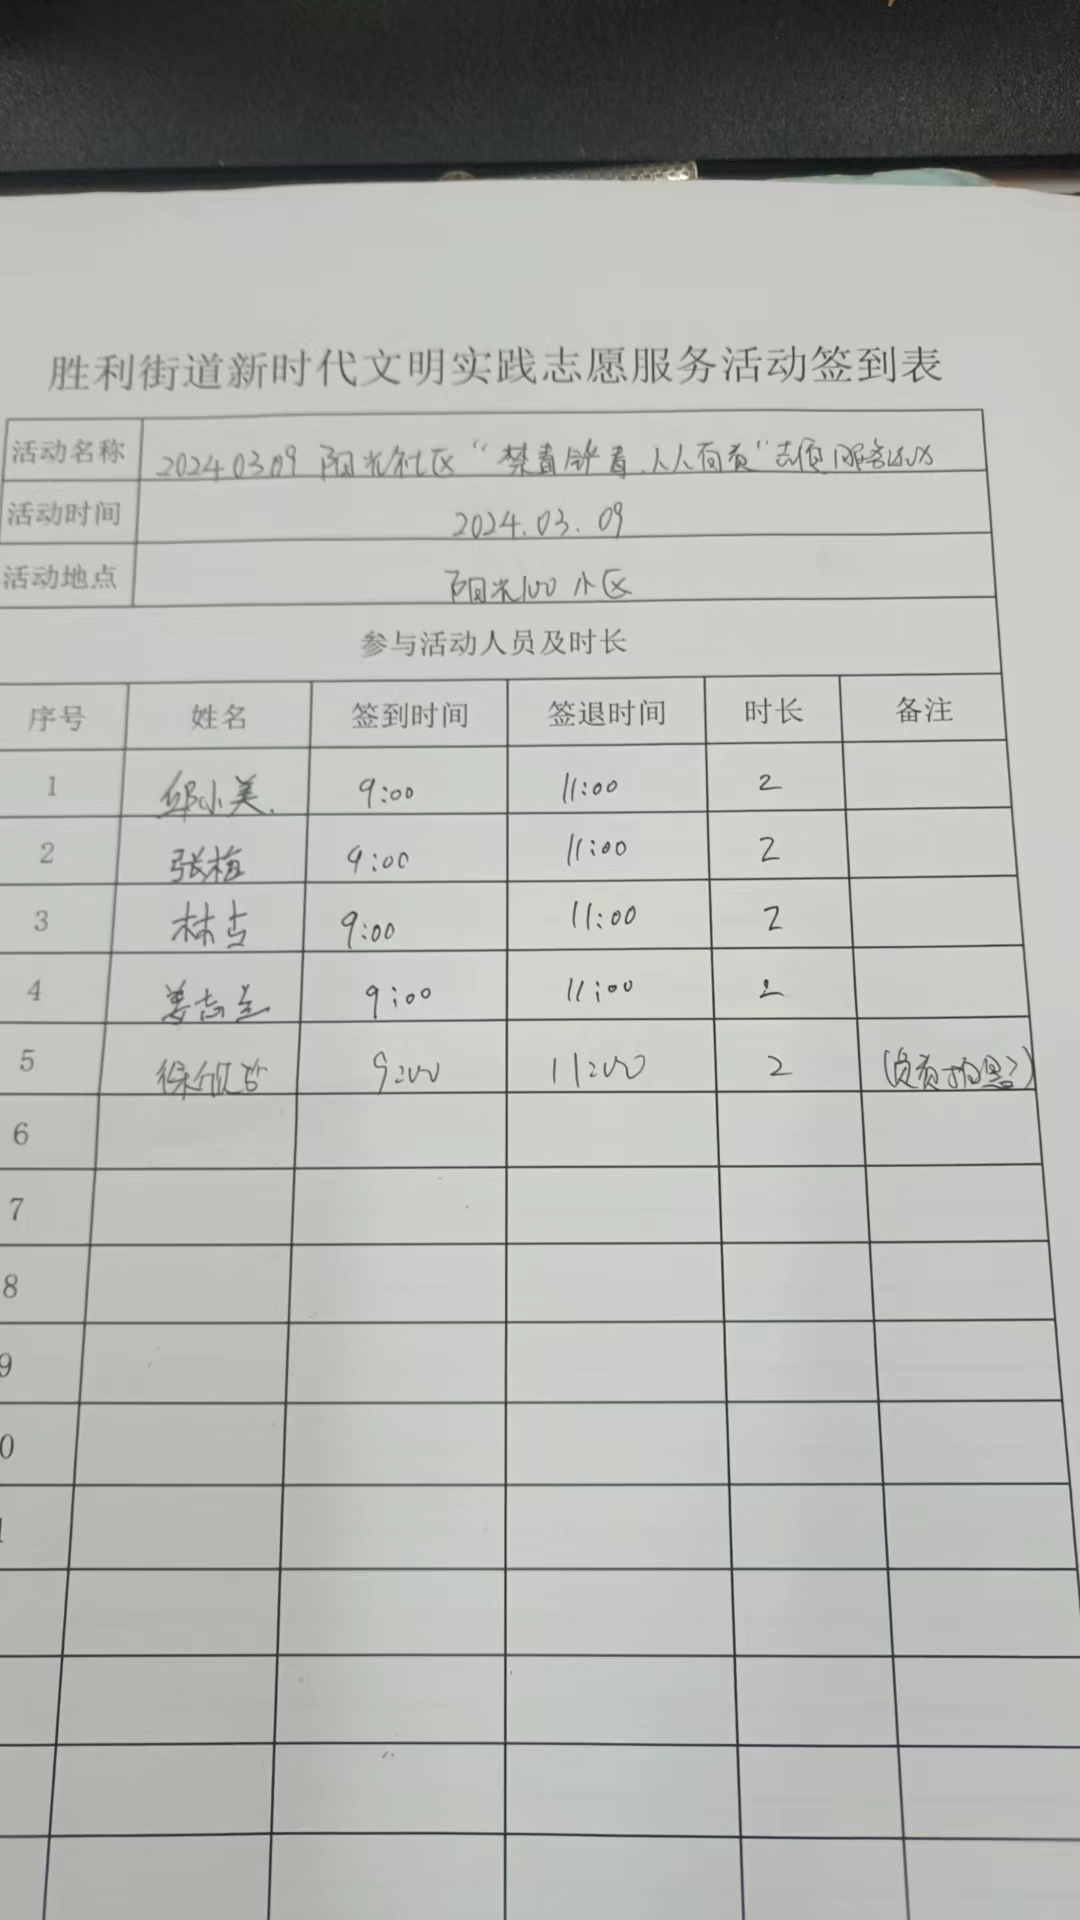 胜利街道新时代文明实践志愿服务活动签到表
活动名称 20240309 阳光社区“禁毒铲毒 人人有责”志愿服务活动
活动时间 2024.03.09
活动地点 阳光100小区
参与活动人员及时长
序号 姓名 签到时间 签退时间 时长 备注
1 邱小美 9:00 11:00 2
2 张梅 9:00 11:00 2
3 林吉 9:00 11:00 2
4 姜志兰 9:00 11:00 2
5 徐 9:00 11:00 2 (负责拍照)
6
7
8
9
0
1